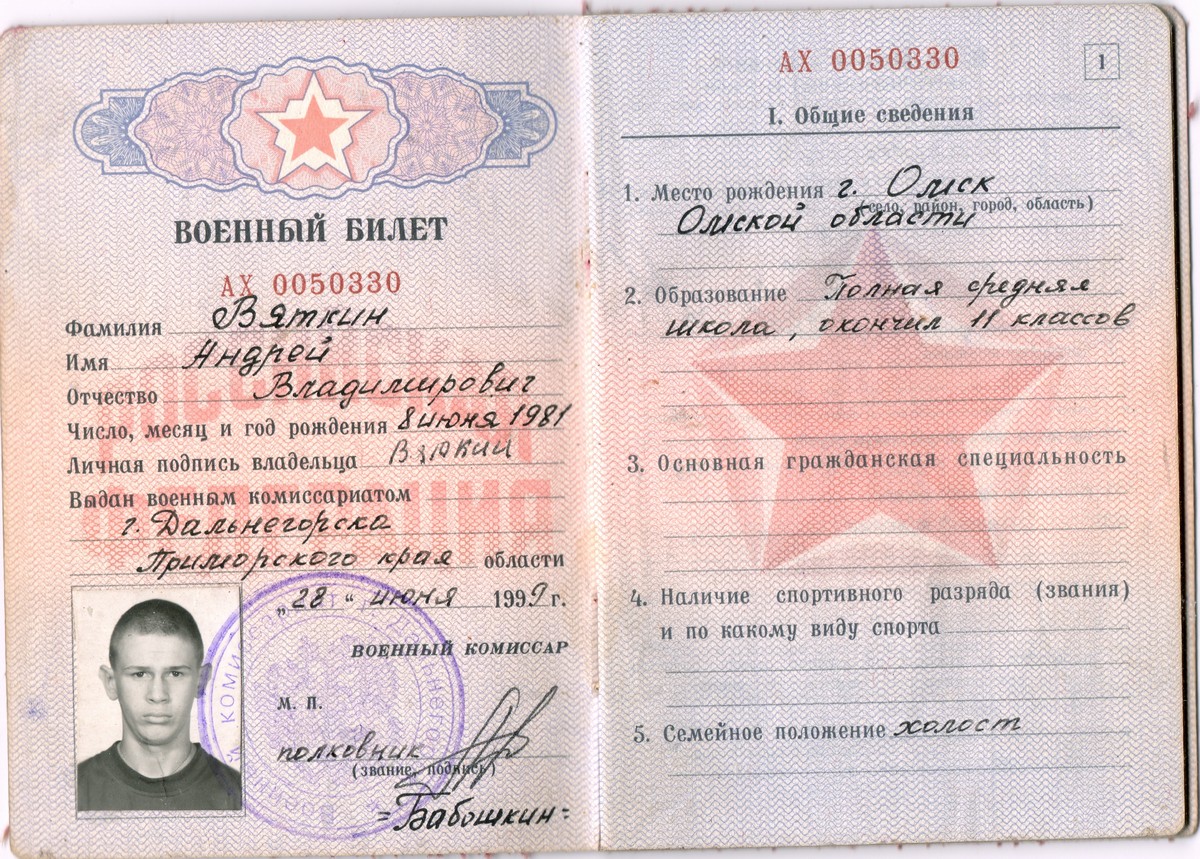 ВОЕННЫЙ БИЛЕТ
АХ 0050330
Фамилия Вяткин
Имя Андрей
Отчество Владимирович
Число, месяц и год рождения 8 июня 1981
Личная подпись владельца
Выдан военным комиссариатом
г. Дальнегорска
Приморского края области
„28“ июня 1999 г.
ВОЕННЫЙ КОМИССАР
М. П.
полковник
(звание, подпись)
=Бабошкин=
АХ 0050330
1
I. Общие сведения
1. Место рождения г. Омск
(село, район, город, область)
Омской области
2. Образование Полная средняя
школа, окончил 11 классов
3. Основная гражданская специальность
4. Наличие спортивного разряда (звания)
и по какому виду спорта
5. Семейное положение холост